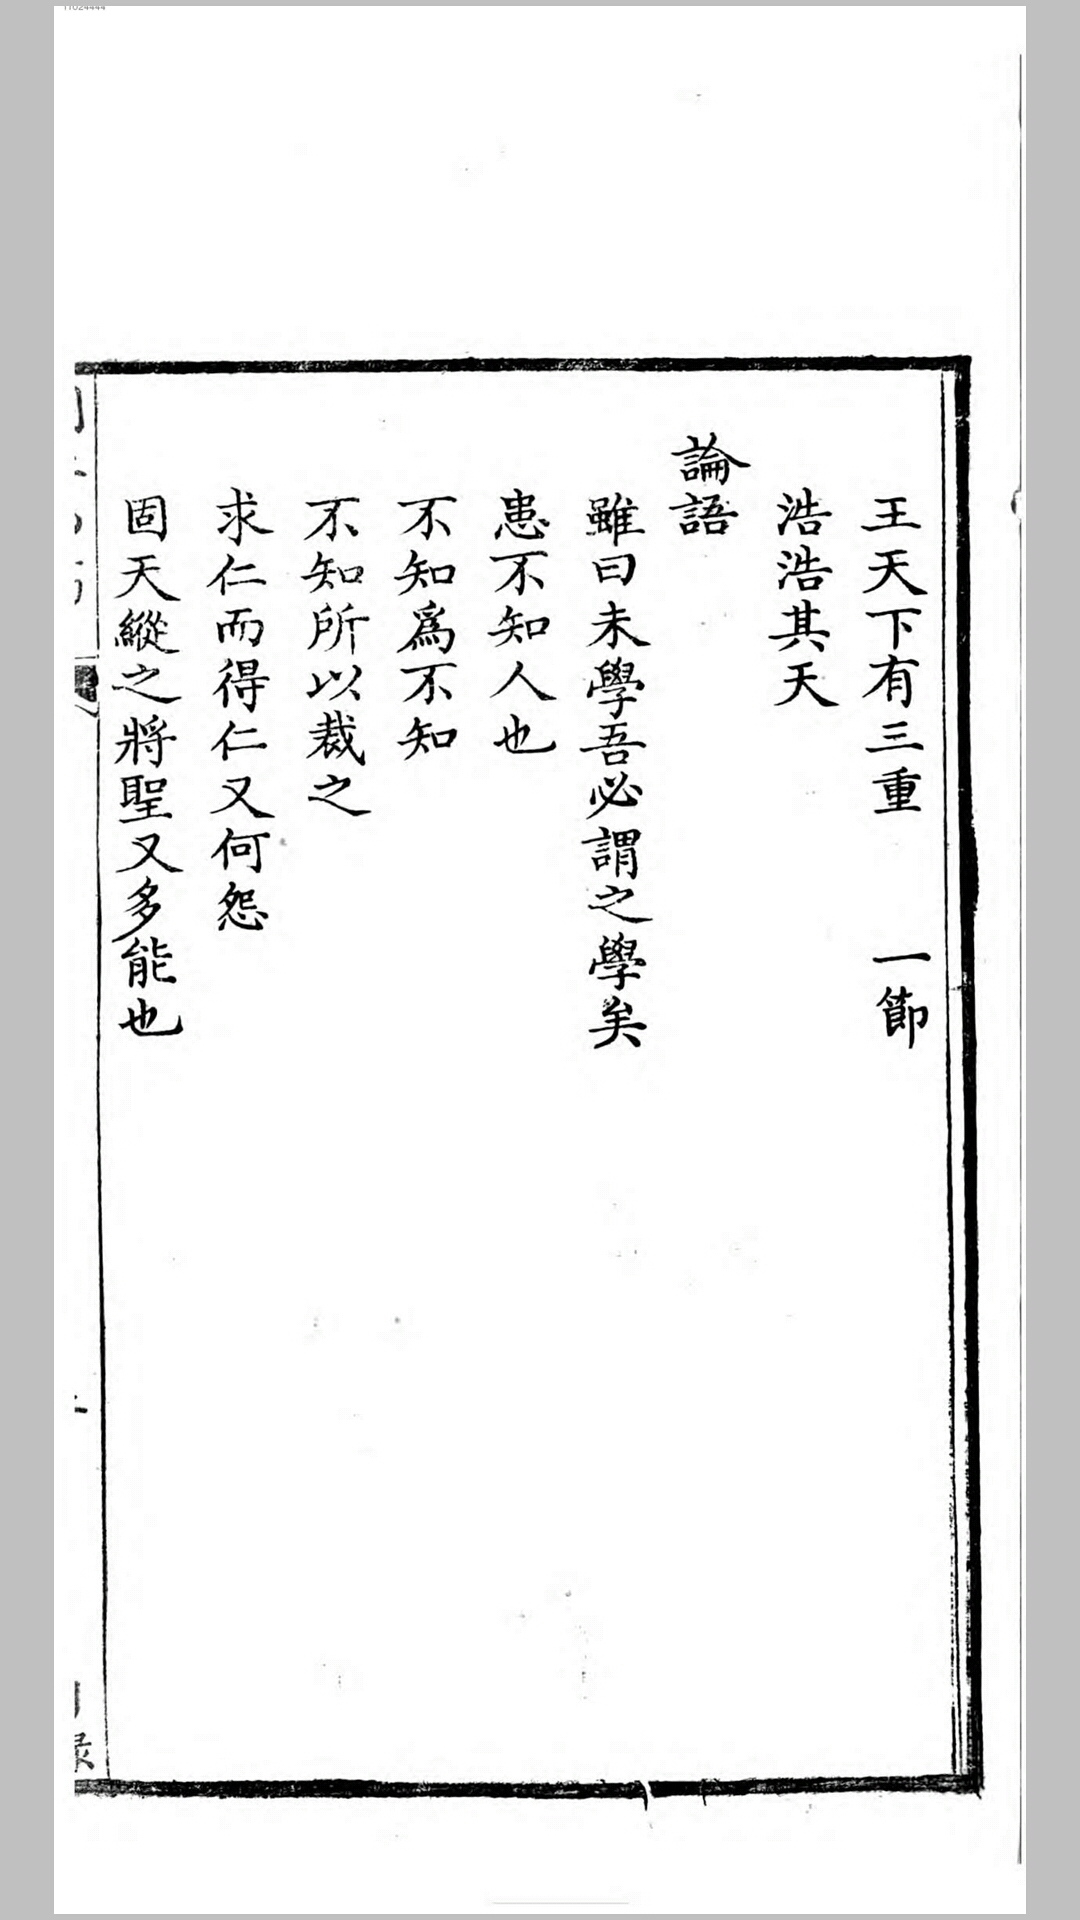 王天下有三重　一節
浩浩其天
論語
雖曰未學吾必謂之學矣
患不知人也
不知爲不知
不知所以裁之
求仁而得仁又何怨
固天縱之將聖又多能也